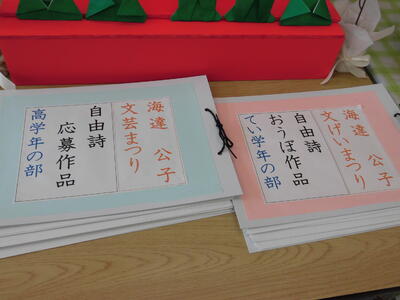 海達　公子
文芸まつり
自由詩
応募作品
高学年の部
海達　公子
文げいまつり
自由詩
おうぼ作品
てい学年の部